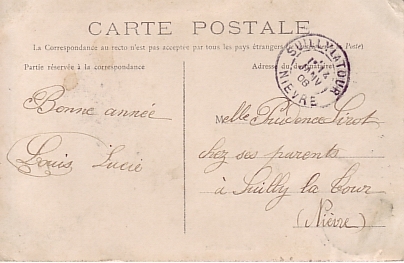 CARTE POSTALE
La Correspondance au recto n'est pas acceptée par tous les pays étrangers Poste)
Partie réservée à la correspondance
Adresse du destinataire
SUILLY-LA-TOUR
NIÈVRE
JANV
08
Bonne année
Louis Lucie
Melle Prudence Sirot
chez ses parents
à Suilly la Tour
(Nièvre)